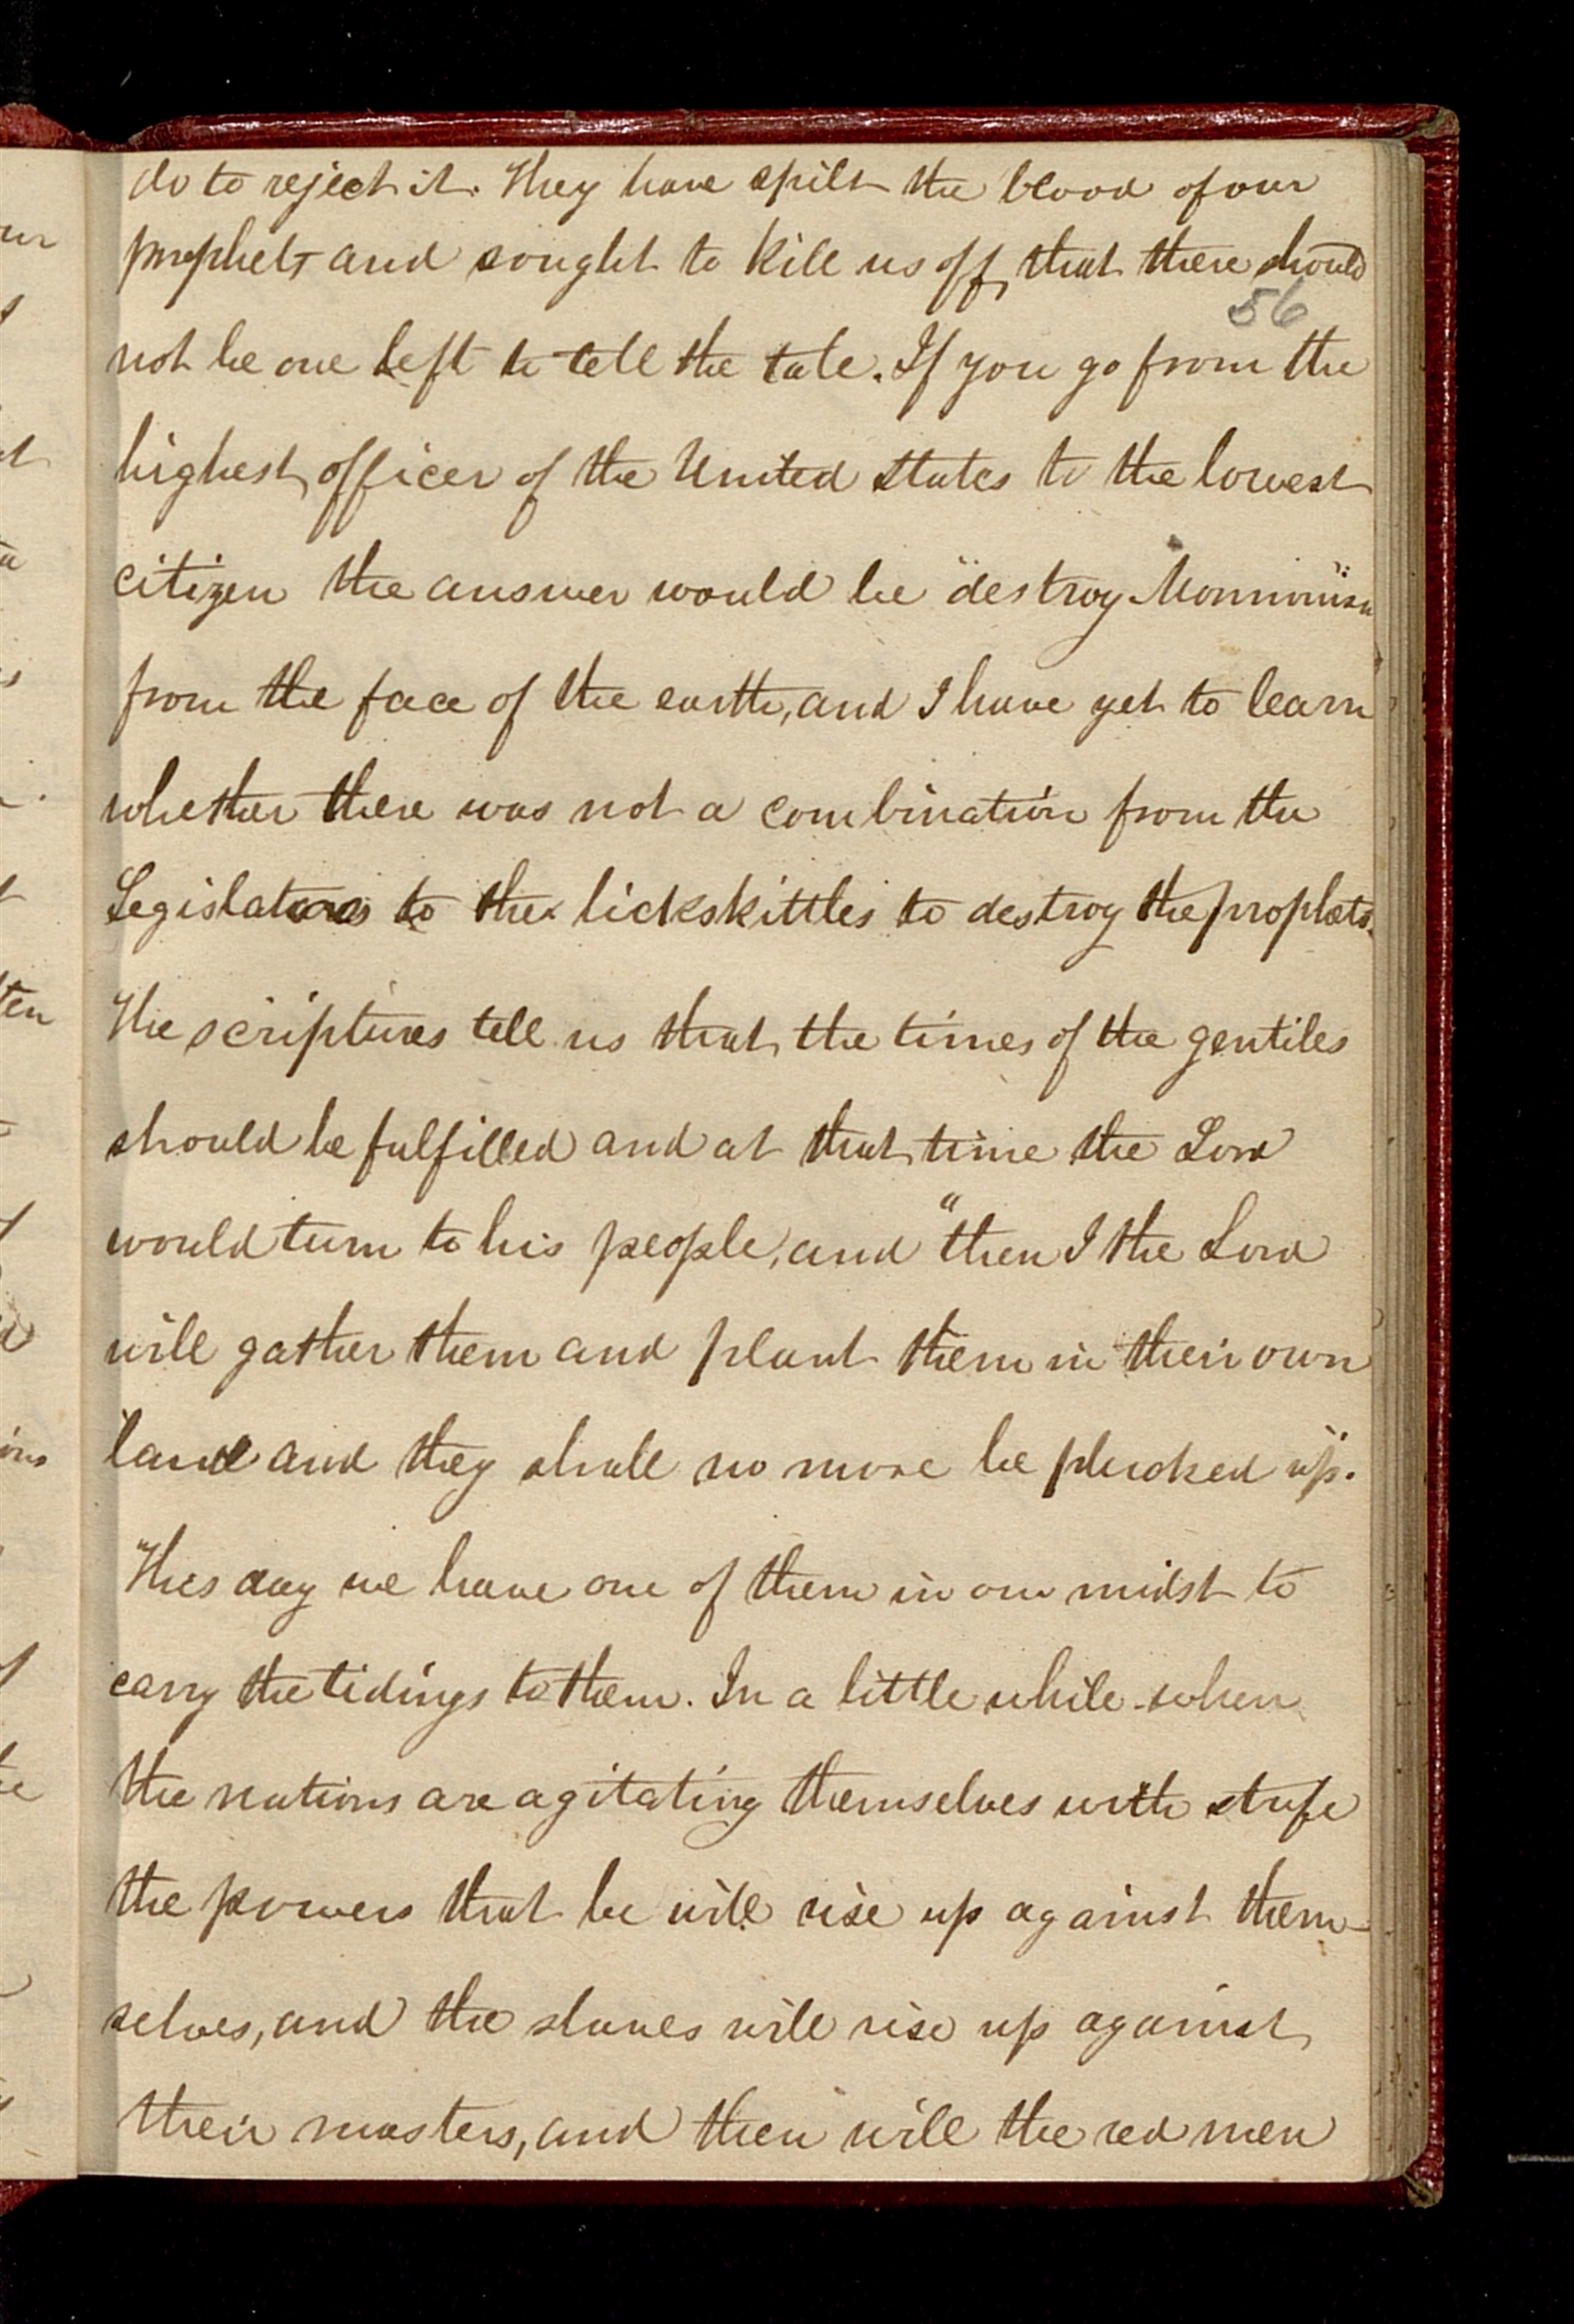 do to reject it. They have spilt the blood of our
prophets and sought to kill us off, that there should
56
not be one left to tell the tale. If you go from the
highest officer of the United States to the lowest
citizen the answer would be "destroy Mormonism"
from the face of the earth, and I have yet to learn
whether there was not a combination from the
Legislators to the lickskittles to destroy the prophets.
The scriptures tell us that the times of the gentiles
should be fulfilled and at that time the Lord
would turn to his people, and "then I the Lord
will gather them and plant them in their own
land and they shall no more be plucked up".
This day we have one of them in our midst to
carry the tidings to them. In a little while when
the nations are agitating themselves with strife
the powers that be will rise up against them-
selves, and the slaves will rise up against
their masters, and then will the red men